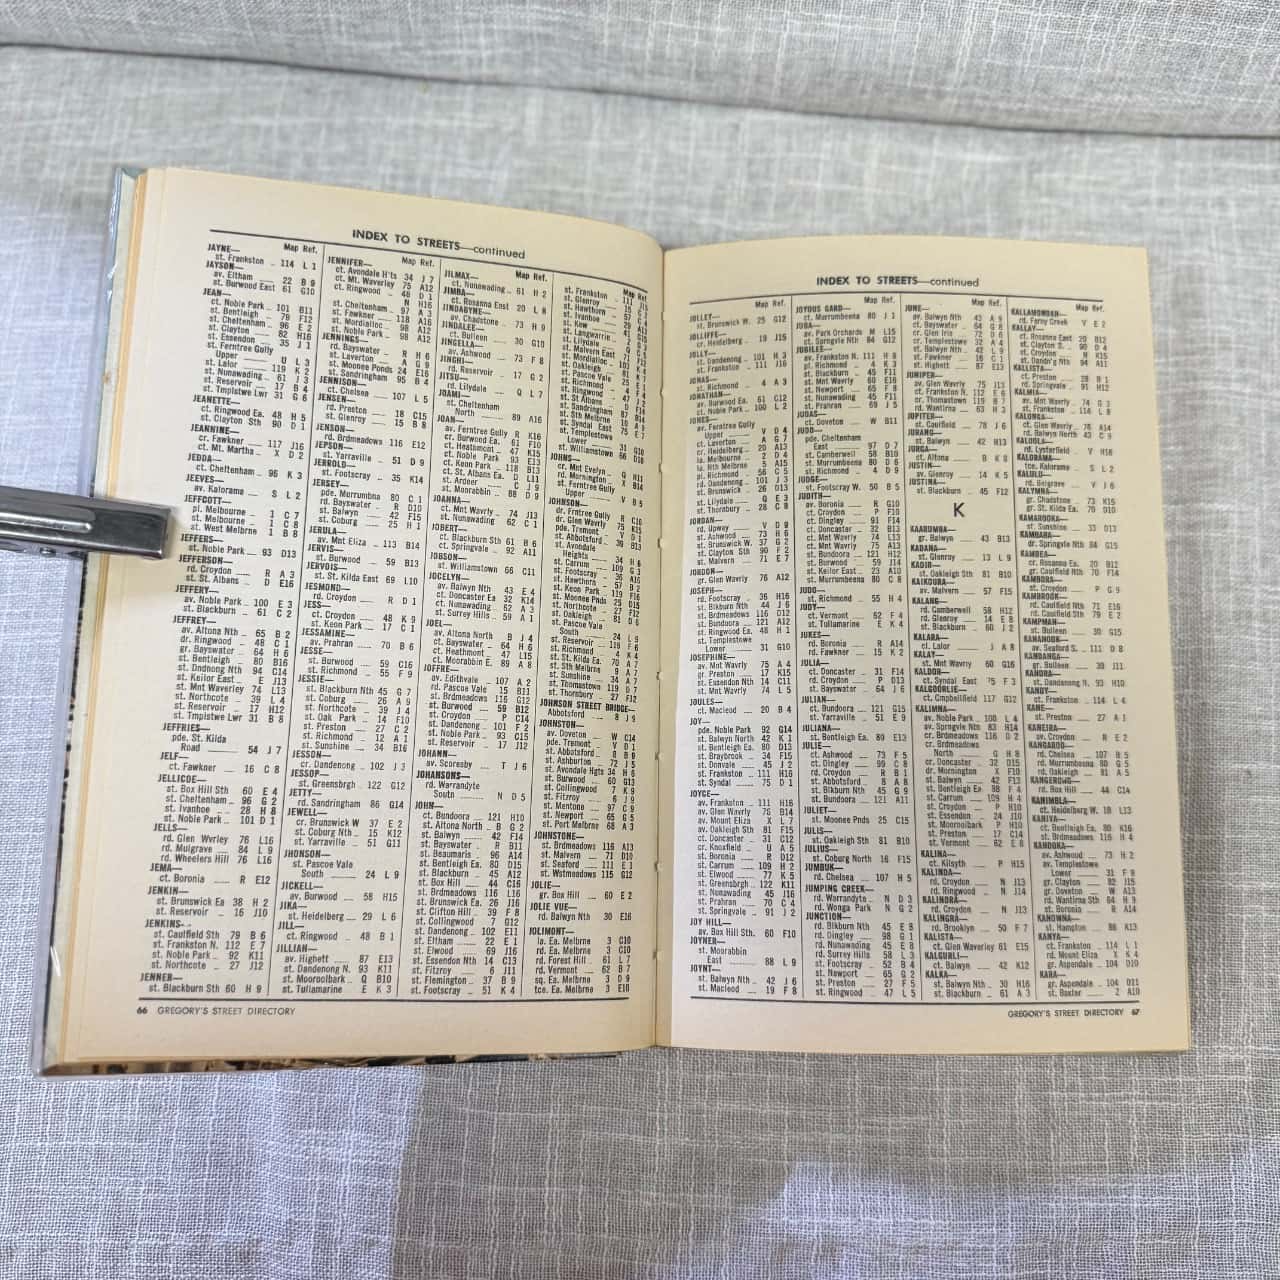 INDEX TO STREETS—continued
Map Ref.
JAYNE—
st. Frankston .. 114 L 1
JAYSON—
av. Eltham ...... 22 B 9
st. Burwood East 61 G10
JEAN—
ct. Noble Park .. 101 B11
st. Bentleigh .. 79 F12
st. Cheltenham .. 96 E 2
st. Clayton ...... 82 H16
st. Essendon .. 35 J 1
st. Ferntree Gully
Upper ...... U L 3
st. Lalor ...... 119 K 2
st. Nunawading .. 61 J 3
st. Reservoir .. 17 B 4
st. Tmplstwe Lwr 31 G 6
JEANETTE—
ct. Ringwood Ea. 48 H 5
st. Clayton Sth 90 D 1
JEANNINE—
cr. Fawkner .... 117 J16
ct. Mt. Martha .. X D 2
JEDDA—
ct. Cheltenham .. 96 K 3
JEEVES—
av. Kalorama .... S L 2
JEFFCOTT—
pl. Melbourne .. 1 C 7
st. Melbourne .. 1 C 8
st. West Melbrne 1 B 8
JEFFERS—
st. Noble Park .. 93 D13
JEFFERSON—
rd. Croydon .... R A 3
st. St. Albans .. D E16
JEFFERY—
av. Noble Park .. 100 E 3
st. Blackburn .. 61 C 2
JEFFREY—
av. Altona Nth .. 65 B 2
dr. Ringwood .. 48 C 1
gr. Bayswater .. 64 H 6
st. Bentleigh .. 80 B16
st. Dndnong Nth 94 C14
st. Keilor East .. E J13
st. Mnt Waverley 74 L13
st. Northcote .. 39 L 4
st. Reservoir .. 17 H12
st. Tmplstwe Lwr 31 B 8
JEFFRIES—
pde. St. Kilda
Road ...... 54 J 7
JELF—
ct. Fawkner .... 16 C 8
JELLICOE—
st. Box Hill Sth 60 E 4
st. Cheltenham .. 96 G 2
st. Ivanhoe .... 28 H 8
st. Noble Park .. 101 D 1
JELLS—
rd. Glen Wvrley 76 L16
rd. Mulgrave .. 84 L 9
rd. Wheelers Hill 76 L16
JEMA—
ct. Boronia .... R E12
JENKIN—
st. Brunswick Ea 38 H 2
st. Reservoir .. 16 J10
JENKINS—
st. Caulfield Sth 79 B 6
st. Frankston N. 112 E 7
st. Noble Park .. 92 K11
st. Northcote .. 27 J12
JENNER—
st. Blackburn Sth 60 H 9
Map Ref.
JENNIFER—
ct. Avondale H'ts 34 J 7
ct. Mt. Waverley 75 A12
ct. Ringwood .. 48 D 1
N H16
st. Cheltenham .. 97 A 3
st. Fawkner .... 118 A16
st. Mordialloc .. 98 A12
st. Noble Park .. 98 A12
JENNINGS—
rd. Bayswater .. R H 6
st. Laverton .... A G 9
st. Moonee Ponds 24 E16
st. Sandringham 95 B 4
JENNISON—
ct. Chelsea .... 107 L 5
JENSEN—
rd. Preston .... 18 C15
st. Glenroy .... 15 B 8
JENSON—
rd. Brdmeadows 116 E12
JEPSON—
st. Yarraville .. 51 D 9
JERROLD—
st. Footscray .. 35 K14
JERSEY—
pde. Murrumbna 80 C 1
rd. Bayswater .. R D10
st. Balwyn .... 42 F15
st. Coburg .... 25 H 1
JERULA—
av. Mnt Eliza .. 113 B14
JERVIS—
st. Burwood .... 59 B13
JERVOIS—
st. St. Kilda East 69 L10
JESMOND—
rd. Croydon .... R D 1
JESS—
ct. Croydon .... 48 K 9
st. Keon Park .. 17 C 1
JESSAMINE—
av. Prahran .... 70 B 6
JESSE—
st. Burwood .... 59 C16
st. Richmond .. 55 F 9
JESSIE—
st. Blackburn Nth 45 G 7
st. Coburg .... 26 A 9
st. Northcote .. 39 J 4
st. Oak Park .. 14 F10
st. Preston .... 27 C 2
st. Richmond .. 12 A 1
st. Sunshine .. 34 B16
JESSON—
cr. Dandenong .. 102 J 3
JESSOP—
st. Greensbrgh .. 122 G12
JETTY—
rd. Sandringham 86 G14
JEWELL—
cr. Brunswick W 37 E 2
st. Coburg Nth .. 15 K12
st. Yarraville .. 51 G11
JHONSON—
st. Pascoe Vale
South .... 24 L 9
JICKELL—
av. Burwood .... 58 H15
JIKA—
st. Heidelberg .. 29 L 6
JILL—
ct. Ringwood .. 48 B 1
JILLIAN—
av. Highett .... 87 E13
st. Dandenong N. 93 K11
st. Mooroolbark Q B10
st. Tullamarine E K 3
Map Ref.
JILMAX—
ct. Nunawading .. 61 H 2
JIMBA—
ct. Rosanna East 20 L 8
JINDABYNE—
av. Chadstone .. 73 H 9
JINDALEE—
ct. Bulleen .... 30 G10
JINGELLA—
av. Ashwood .... 73 F 8
JINGHI—
rd. Reservoir .. 17 G 2
JITSU—
rd. Lilydale .... Q L 7
JOAMI—
st. Cheltenham
North .... 89 A16
JOAN—
av. Ferntree Gully R K16
cr. Burwood Ea. 61 F10
ct. Heathmont .. 47 K15
ct. Noble Park 93 E13
ct. Keon Park .. 118 B13
ct. St. Albans Ea. D L11
st. Ardeer .... C J 9
st. Moorabbin .. 88 D 9
JOANNA—
ct. Mnt Wavrly .. 74 J13
st. Nunawading 62 C 1
JOBERT—
ct. Blackburn Sth 61 H 6
ct. Springvale .. 92 A11
JOBSON—
st. Williamstown 66 C11
JOCELYN—
av. Balwyn Nth 43 E 4
ct. Doncaster Ea 32 K14
ct. Nunawading 62 A 3
st. Surrey Hills .. 59 A 1
JOEL—
av. Altona North B J 4
ct. Bayswater .. 64 H 6
ct. Heathmont .. 47 L15
ct. Moorabbin E. 89 A 8
JOFFRE—
av. Edithvale .. 107 A 2
rd. Pascoe Vale 15 B11
st. Brdmeadows 116 G12
st. Burwood .... 59 B12
st. Croydon .... P C14
st. Dandenong .. 101 F 2
st. Noble Park .. 93 C15
st. Reservoir .. 17 J12
JOHANN—
av. Scoresby .... T J 6
JOHANSONS—
rd. Warrandyte
South .... N D 5
JOHN—
ct. Bundoora .. 121 H10
st. Altona North B G 2
st. Balwyn .... 42 F14
st. Bayswater .. R B11
st. Beaumaris .. 96 A14
st. Bentleigh Ea. 80 D15
st. Blackburn .. 45 A12
st. Box Hill .... 44 C16
st. Brdmeadows 116 L16
st. Brunswick Ea. 26 J16
st. Clifton Hill .. 39 F 8
st. Collingwood 7 G12
st. Dandenong .. 102 E11
st. Eltham .... 22 E 1
st. Elwood .... 69 J16
st. Essendon Nth 14 C13
st. Fitzroy .... 6 J11
st. Flemington .. 37 B 9
st. Footscray .. 51 K 4
Map Ref.
st. Frankston .. 111 J15
st. Kew
st. Richmond
st. St Albans
st. Templestowe
Lower .... 31 G10
st. Williamstown 66 D16
JOHNS—
cr. Mnt Evelyn .. Q H 9
rd. Mornington .. X B14
st. Ferntree Gully
Upper .... V B 5
JOHNSON—
dr. Frntree Gully R C16
dr. Glen Wavrly 75 K15
pde. Tremont .. V D 1
st. Abbotsford .. 39 B13
st. Avondale
Heights .... 34 H 6
st. Carrum .... 109 G 3
st. Footscray .. 36 A16
st. Hawthorn .. 57 B 2
st. Keon Park .. 119 F16
st. Moonee Pnds 25 D15
st. Northcote .. 27 F12
st. Oakleigh .. 81 D 6
st. Pascoe Vale
South .... 24 L 9
st. Reservoir .. 17 H 9
st. Richmond .. 4 K 4
st. St. Kilda Ea. 70 A 7
st. Sth Melbrne 9 A 7
st. Sunshine .. 34 A 7
st. Thomastown 119 D 7
st. Thornbury .. 27 F12
JOHNSON STREET BRIDGE—
Abbotsford .. 8 J 9
JOHNSTON—
av. Doveton .. W C14
pde. Tremont .. V D 1
st. Abbotsford .. 8 B 9
st. Ashburton .. 72 J 5
st. Avondale Hgts 34 H 6
st. Burwood .. 60 G13
st. Collingwood 7 K 9
st. Fitzroy .... 6 J 9
st. Mentone .. 97 C 9
st. Newport .. 65 G 5
st. Port Melbrne 68 A 3
JOHNSTONE—
st. Brdmeadows 116 A13
st. Malvern .... 71 D10
st. Seaford .... 111 E 1
st. Wstmeadows 115 G12
JOLIE—
gr. Box Hill .... 60 E 2
JOLIE VUE—
rd. Balwyn Nth 30 E16
JOLIMONT—
la. Ea. Melbrne 3 C10
rd. Ea. Melbrne 3 C10
rd. Forest Hill .. 61 L 7
rd. Vermont .. 62 B 7
sq. Ea. Melbrne 3 D 9
tce. Ea. Melbrne 3 E10
66 GREGORY'S STREET DIRECTORY
INDEX TO STREETS—continued
Map Ref.
JOLLEY—
st. Brunswick W. 25 G12
JOLLIFFE—
cr. Heidelberg .. 19 J15
JOLLY—
st. Dandenong .. 101 H 3
st. Frankston .. 111 J16
JONAS—
st. Richmond .. 4 A 3
JONATHAN—
av. Burwood Ea. 61 C12
ct. Noble Park .. 100 L 2
JONES—
av. Ferntree Gully
Upper .... V D 4
ct. Laverton .. A G 7
cr. Heidelberg .. 20 A13
la. Melbourne .. 2 D 4
la. Nth Melbrne 5 A15
pl. Richmond .. 56 C 5
rd. Dandenong .. 101 J 3
st. Brunswick .. 26 D13
st. Lilydale .... Q E 3
st. Thornbury .. 28 C 8
JORDAN—
rd. Upwey .... V D 9
st. Ashwood .. 73 H 6
st. Brunswick W. 37 G 2
st. Clayton Sth 90 F 2
st. Malvern .... 71 E 7
JORDON—
gr. Glen Wavrly 76 A12
JOSEPH—
rd. Footscray .. 36 H16
st. Blkburn Nth 44 J 6
st. Brdmeadows 116 D12
st. Bundoora .. 121 A12
st. Ringwood Ea. 48 H 1
st. Templestowe
Lower .... 31 G10
JOSEPHINE—
av. Mnt Wavrly 75 A 4
gr. Preston .... 17 K15
st. Essendon Nth 14 C11
st. Mnt Wavrly 74 L 5
JOULES—
ct. Macleod .... 20 B 4
JOY—
pde. Noble Park 92 G14
st. Balwyn North 42 K 1
st. Bentleigh Ea. 80 D13
st. Braybrook .. 34 F15
st. Donvale .... 45 J 2
st. Frankston .. 111 H16
st. Syndal .... 75 D 1
JOYCE—
av. Frankston .. 111 H16
av. Glen Wavrly 76 B14
av. Mount Eliza X L 7
av. Oakleigh Sth 81 F15
ct. Doncaster .. 31 C12
cr. Knoxfield .. U A 5
st. Boronia .... R D12
st. Carrum .... 109 H 2
st. Elwood .... 77 K 5
st. Greensbrgh .. 122 K11
st. Nunawading 45 J16
st. Prahran .... 70 C 4
st. Springvale .. 91 J 2
JOY HILL—
av. Box Hill Sth. 60 F10
JOYNER—
st. Moorabbin
East .... 88 L 9
JOYNT—
st. Balwyn Nth .. 42 J 6
st. Macleod .... 19 F 8
Map Ref.
JOYOUS GARD—
ct. Murrumbeena 80 J 1
JUBA—
av. Park Orchards M L15
ct. Springvle Nth 84 G12
JUBILEE—
av. Frankston N. 111 H 9
pl. Richmond .. 4 K 3
st. Blackburn .. 45 F11
st. Mnt Wavrly 60 E16
st. Newport .... 65 F 8
st. Nunawading 45 F11
st. Prahran .... 69 J 5
JUDAS—
ct. Doveton .... W B11
JUDD—
pde. Cheltenham
East .... 97 D 7
st. Camberwell 58 B10
st. Murrumbeena 80 D 6
st. Richmond .. 4 D 9
JUDGE—
st. Footscray W. 50 B 5
JUDITH—
av. Boronia .... R G10
ct. Croydon .... P F10
ct. Dingley .... 91 F14
ct. Doncaster .. 32 B13
ct. Mnt Wavrly 74 L13
ct. Mnt Wavrly 75 A13
st. Bundoora .. 121 H12
st. Burwood .... 59 J14
st. Keilor East .. 23 A10
st. Murrumbeena 80 C 8
JUDO—
st. Richmond .. 55 H 4
JUDY—
ct. Vermont .... 62 F 4
st. Tullamarine E K 5
JUKES—
rd. Boronia .... R A14
rd. Fawkner .... 15 K 2
JULIA—
ct. Doncaster .. 31 F14
rd. Croydon .... P D13
st. Bayswater .. 64 J 6
JULIAN—
ct. Bundoora .. 121 G15
st. Yarraville .. 51 E 9
JULIANA—
st. Bentleigh Ea. 89 E13
JULIE—
ct. Ashwood .... 73 F 5
ct. Dingley .... 99 C 8
rd. Croydon .... R B 1
st. Abbotsford .. 8 A 8
st. Blkburn Nth 45 G 9
st. Bundoora .. 121 A11
JULIET—
st. Moonee Pnds 25 C15
JULIS—
st. Oakleigh Sth 81 B10
JULIUS—
st. Coburg North 16 F15
JUMBUK—
rd. Chelsea .... 107 H 5
JUMPING CREEK—
rd. Warrandyte .. N D 3
rd. Wonga Park N G 2
JUNCTION—
rd. Blkburn Nth 45 E 8
rd. Dingley .... 98 G 1
rd. Nunawading 45 E 8
rd. Surrey Hills 58 L 3
st. Footscray .. 52 B 4
st. Newport .... 65 G 2
st. Preston .... 27 F 5
st. Ringwood .. 47 L 5
Map Ref.
JUNE—
av. Balwyn Nth 43 A 9
ct. Bayswater .. 64 G 8
cr. Glen Iris .. 72 D 6
cr. Templestowe 32 A 4
st. Balwyn Nth .. 42 L 9
st. Fawkner .... 16 C 1
st. Highett .... 87 E13
JUNIPER—
av. Glen Wavrly 75 J13
ct. Frankston N. 112 E 6
cr. Thomastown 119 B 7
rd. Wantirna .. 63 H 3
JUPITER—
st. Caulfield .. 78 J 6
JURANG—
st. Balwyn .... 42 H13
JURGA—
ct. Altona .... B K 8
JUSTIN—
av. Glenroy .... 14 K 5
JUSTINA—
st. Blackburn .. 45 F12
K
KAARUMBA—
gr. Balwyn .... 43 B13
KADANA—
st. Glenroy .... 13 L 9
KADIR—
st. Oakleigh Sth 81 B10
KAIKOURA—
av. Malvern .... 57 F15
KALANG—
rd. Camberwell 58 H12
rd. Glenroy .... 14 E 8
st. Blackburn .. 60 J 2
KALARA—
cl. Lalor .... J A 8
KALAY—
st. Mnt Wavrly 60 G16
KALDOR—
ct. Syndal East 75 F 3
KALGOORLIE—
ct. Cmpbellfield 117 G12
KALIMNA—
av. Noble Park .. 100 L 4
av. Sprngvle Nth 83 H14
cr. Brdmeadows 116 D 2
cr. Brdmeadows
North .... G H 8
cr. Doncaster .. 32 D15
dr. Mornington X F10
st. Balwyn .... 42 F13
st. Bentleigh Ea 88 F 4
st. Carrum .... 109 H 4
st. Croydon .... P K10
st. Essendon .. 24 J10
st. Mooroolbark P H10
st. Preston .... 17 C14
st. Vermont .... 62 E 8
KALINA—
ct. Kilsyth .... P H15
KALINDA—
rd. Croydon .... N J13
rd. Ringwood .. N J14
KALINDRA—
rd. Croydon .... N J13
KALINGRA—
rd. Brooklyn .. 50 F 7
KALISTA—
ct. Glen Waverley 61 E15
KALGURLI—
ct. Balwyn .... 42 K12
KALKA—
st. Balwyn Nth .. 30 H16
st. Blackburn .. 61 A 3
Map Ref.
KALLAMONDAH—
rd. Ferny Creek V E 2
KALLAY—
ct. Rosanna East 20 B12
st. Clayton S. .. 90 D 4
st. Croydon .... N K15
st. Dandn'g Nth 94 A11
KALLISTA—
ct. Preston .... 28 B 1
rd. Springvale .. 91 H12
KALMIA—
av. Mnt Wavrly 74 G 3
st. Frankston .. 114 L 8
KALONGA—
ct. Glen Wavrly 76 A14
rd. Balwyn North 43 C 9
KALOOLA—
rd. Lysterfield .. V H16
KALORAMA—
tce. Kalorama .. S L 2
KALULU—
rd. Belgrave .. V J 6
KALYMNA—
gr. Chadstone .. 73 K15
gr. St. Kilda Ea. 70 D10
KAMAROOKA—
st. Sunshine .. 33 D13
KAMBARA—
dr. Springvle Nth 84 G15
KAMBEA—
cr. Rosanna Ea. 20 B12
gr. Caulfield Nth 70 F14
KAMBORA—
ct. Croydon .... P G 9
KAMBROOK—
rd. Caulfield Nth 71 E16
rd. Caulfield Sth 79 E 2
KAMPMAN—
st. Bulleen .... 30 G15
KANAHOOK—
av. Seaford S. .. 111 D 8
KANDANGA—
gr. Bulleen .... 30 J11
KANDRA—
ct. Dandenong N. 93 H10
KANDY—
st. Frankston .. 114 L 4
KANE—
st. Preston .... 27 A 1
KANEIRA—
av. Croydon .... R E 2
KANGAROO—
rd. Chelsea .... 107 B 5
rd. Murrumbeena 80 G 5
rd. Oakleigh .. 81 A 5
KANGERONG—
rd. Box Hill .... 44 C14
KANIMBLA—
ct. Heidelberg W. 18 L13
KANIVA—
ct. Bentleigh Ea. 80 K16
st. Brdmeadows 116 H 4
KANOOKA—
av. Ashwood .... 73 H 2
av. Templestowe
Lower .... 31 F 8
gr. Clayton .... 82 J15
gr. Doveton .. W A13
rd. Wantirna Sth 64 H 9
st. Boronia .... R A14
KANOWNA—
st. Hampton .. 86 K13
KANYA—
ct. Frankston .. 114 L 1
rd. Mount Eliza X K 4
gr. Aspendale .. 104 D10
KARA—
gr. Aspendale .. 104 D11
st. Baxter .... 2 A10
GREGORY'S STREET DIRECTORY 67